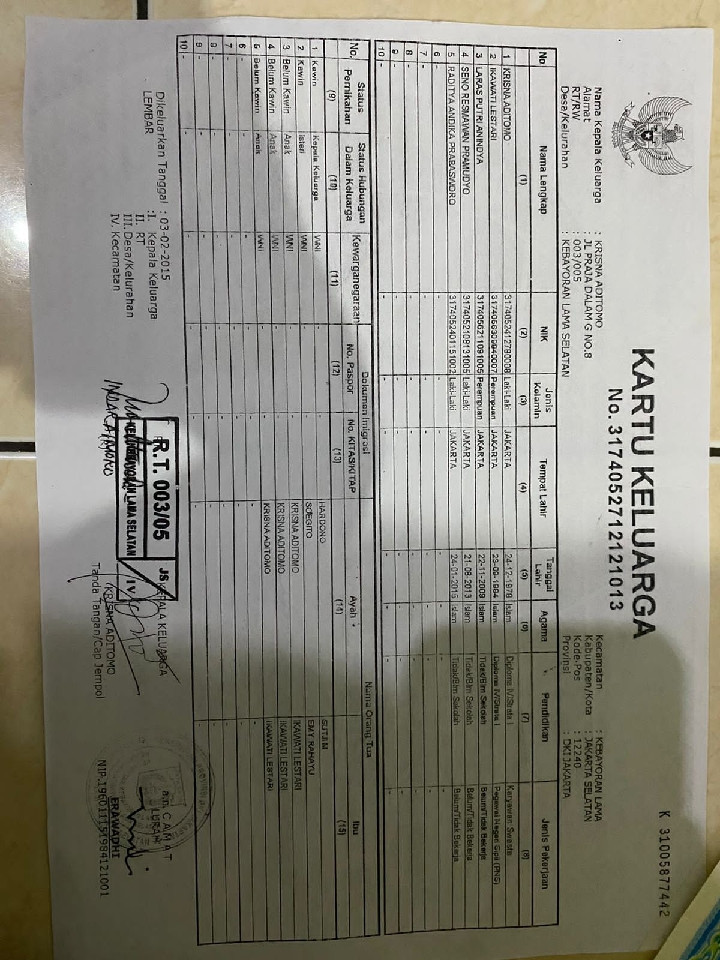 KARTU KELUARGA
No. 3174052712121013
K 31005877442
Nama Kepala Keluarga : KRISNA ADITOMO
Alamat : JL PRAJA DALAM G NO.8
RT/RW : 003/005
Desa/Kelurahan : KEBAYORAN LAMA SELATAN
Kecamatan : KEBAYORAN LAMA
Kabupaten/Kota : JAKARTA SELATAN
Kode-Pos : 12240
Provinsi : DKI JAKARTA
No Nama Lengkap NIK Jenis Kelamin Tempat Lahir Tanggal Lahir Agama Pendidikan Jenis Pekerjaan
(1) (2) (3) (4) (5) (6) (7) (8)
1 KRISNA ADITOMO Laki-Laki JAKARTA 24-12-1978 Islam Diploma IV/Strata I Karyawan Swasta
2 IKAWATI LESTARI Perempuan JAKARTA Islam Diploma IV/Strata I Pegawai Negeri Sipil (PNS)
3 LARAS PUTRI ANINDYA Perempuan JAKARTA 22-11-2009 Islam Tidak/Blm Sekolah Belum/Tidak Bekerja
4 SENO RESMAWAN PRAMUDYO Laki-Laki JAKARTA 21-09-2013 Islam Tidak/Blm Sekolah Belum/Tidak Bekerja
5 RADITYA ANDIKA PRABASWORO Laki-Laki JAKARTA 24-01-2015 Islam Tidak/Blm Sekolah Belum/Tidak Bekerja
6 - - - - - - - -
7 - - - - - - - -
8 - - - - - - - -
9 - - - - - - - -
10 - - - - - - - -
No. Status Pernikahan Status Hubungan Dalam Keluarga Kewarganegaraan Dokumen Imigrasi Nama Orang Tua
No. Paspor No. KITAS/KITAP Ayah Ibu
(9) (10) (11) (12) (13) (14) (15)
1 Kawin Kepala Keluarga WNI - - HARDONO
2 Kawin Isteri WNI - - SOEGITO EMY RAHAYU
3 Belum Kawin Anak WNI - - KRISNA ADITOMO IKAWATI LESTARI
4 Belum Kawin Anak WNI - - KRISNA ADITOMO IKAWATI LESTARI
5 Belum Kawin Anak WNI - - KRISNA ADITOMO IKAWATI LESTARI
6 - - - - - - -
7 - - - - - - -
8 - - - - - - -
9 - - - - - - -
10 - - - - - - -
Dikeluarkan Tanggal : 03-02-2015
LEMBAR : I. Kepala Keluarga
II. RT
III. Desa/Kelurahan
IV. Kecamatan
R.T. 003/05 JS
LAMA SELATAN IV
KEPALA KELUARGA
KRISNA ADITOMO
Tanda Tangan/Cap Jempol
an. CAMAT
LURAH
ERAWADHI
NIP.196011151984121001